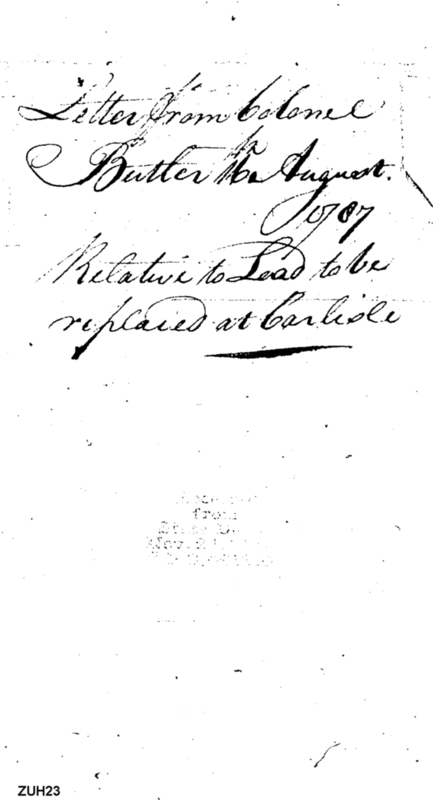 Letter from Colonel
Butler August.
1787
Relative to Lead to be
replaced at Carlisle
from
ZUH23